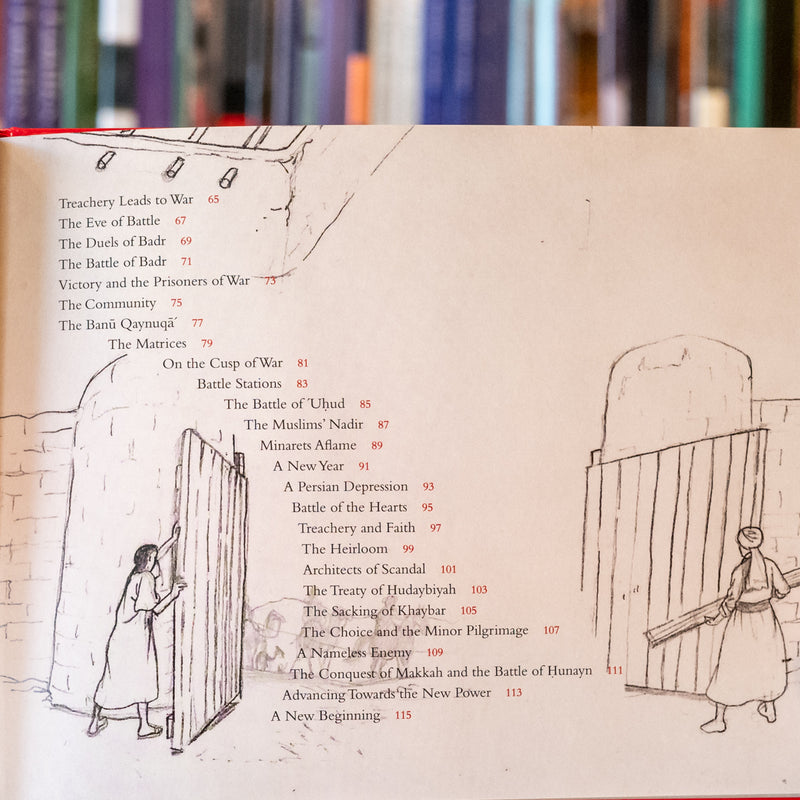 Treachery Leads to War 65
The Eve of Battle 67
The Duels of Badr 69
The Battle of Badr 71
Victory and the Prisoners of War 73
The Community 75
The Banū Qaynuqāʿ 77
The Matrices 79
On the Cusp of War 81
Battle Stations 83
The Battle of ʿUḥud 85
The Muslims’ Nadir 87
Minarets Aflame 89
A New Year 91
A Persian Depression 93
Battle of the Hearts 95
Treachery and Faith 97
The Heirloom 99
Architects of Scandal 101
The Treaty of Ḥudaybiyah 103
The Sacking of Khaybar 105
The Choice and the Minor Pilgrimage 107
A Nameless Enemy 109
The Conquest of Makkah and the Battle of Ḥunayn 111
Advancing Towards the New Power 113
A New Beginning 115